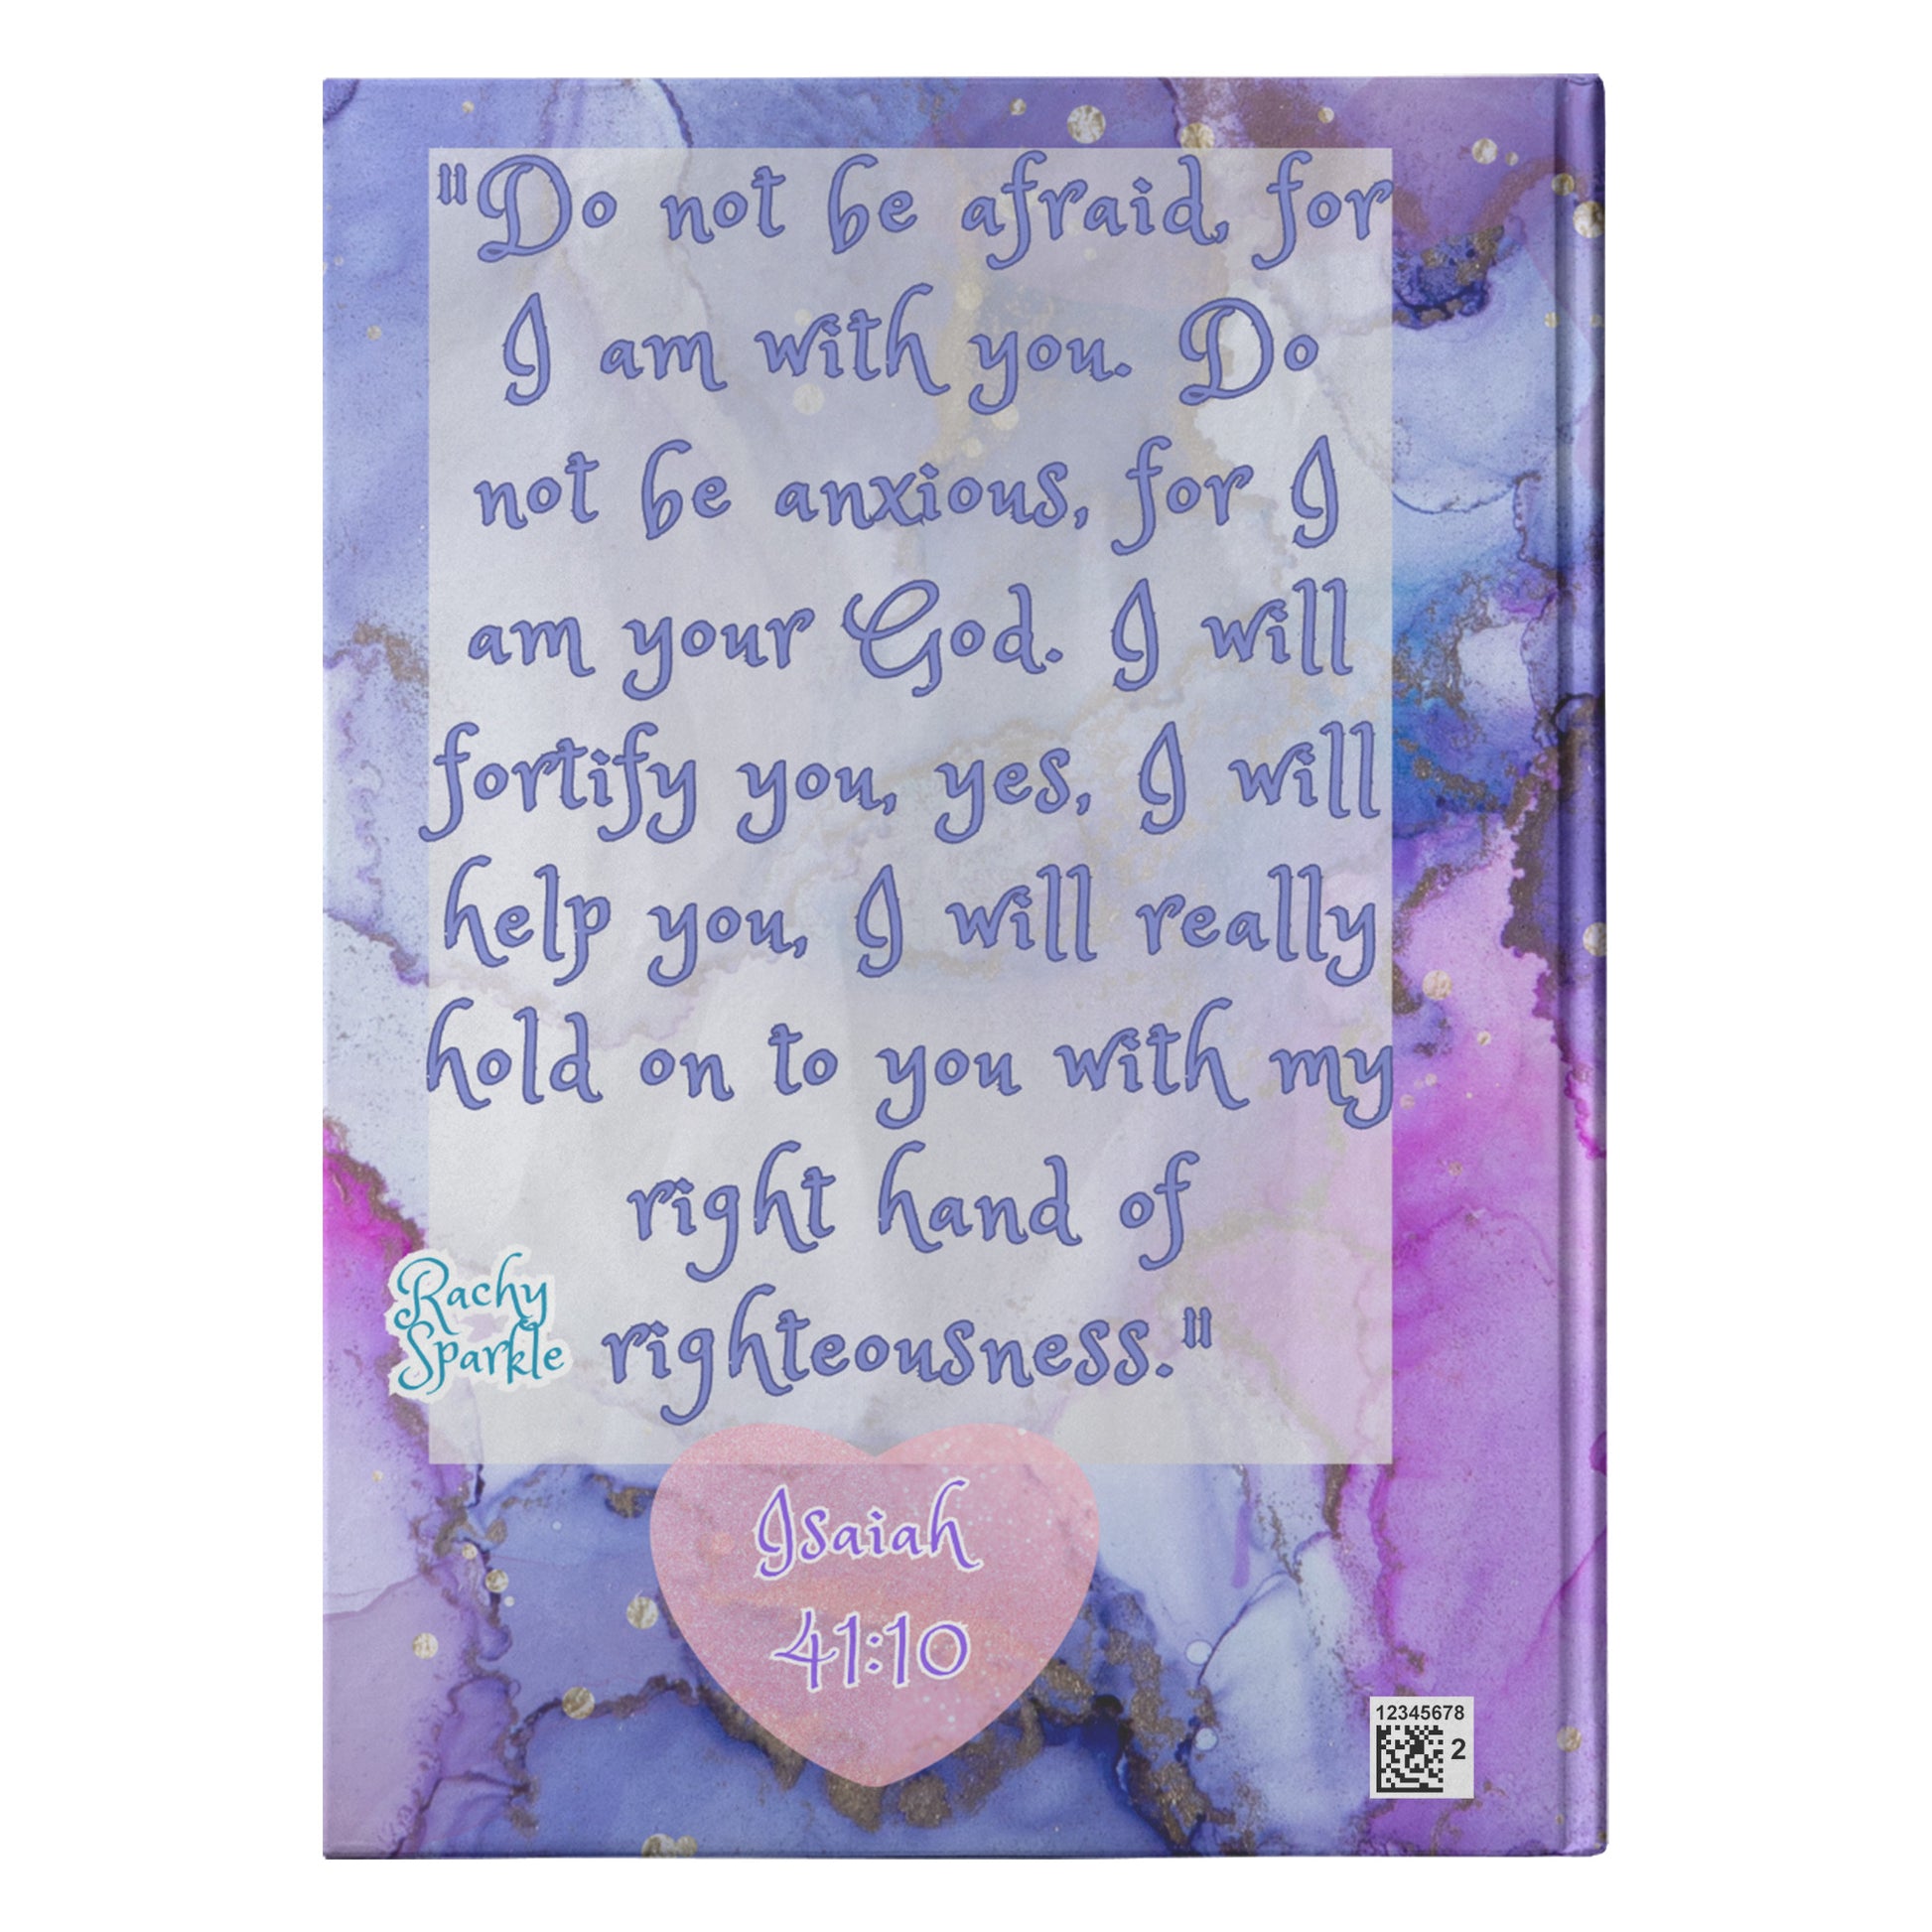 "Do not be afraid, for
I am with you. Do
not be anxious, for I
am your God. I will
fortify you, yes, I will
help you, I will really
hold on to you with my
right hand of
righteousness."
Rachy
Sparkle
Isaiah
41:10
12345678
2